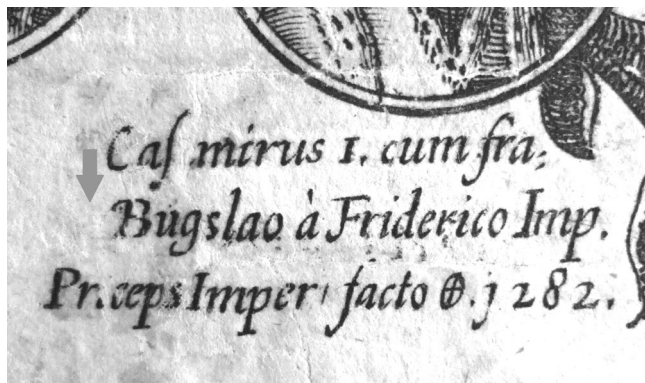 Casimirus 1. cum fra:
Bugslao à Friderico Imp.
Pr.ceps Imper facto ⊕. j 282.